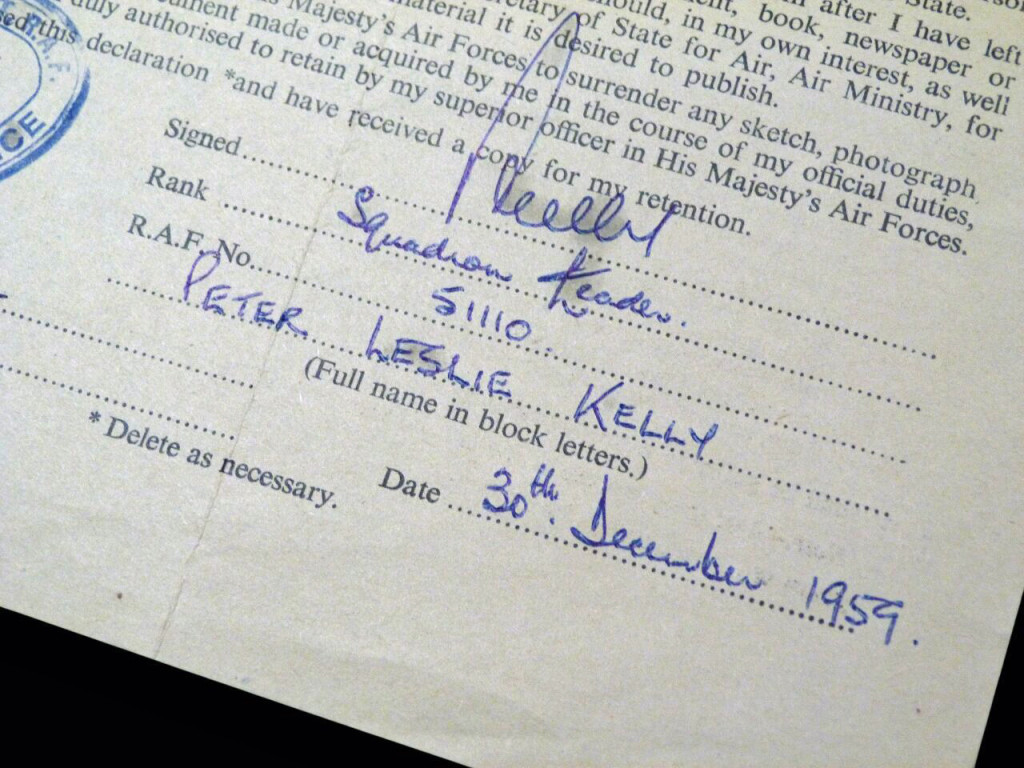 after I have left
State.
book, newspaper or
should, in my own interest, as well
of State for Air, Air Ministry, for
material it is desired to publish.
Majesty's Air Forces to surrender any sketch, photograph
made or acquired by me in the course of my official duties,
duly authorised to retain by my superior officer in His Majesty's Air Forces.
this declaration *and have received a copy for my retention.
R.A.F.
Signed
Kelly
Rank Squadron Leader.
R.A.F. No. 51110.
PETER LESLIE KELLY
(Full name in block letters.)
* Delete as necessary.
Date 30th. December 1959.